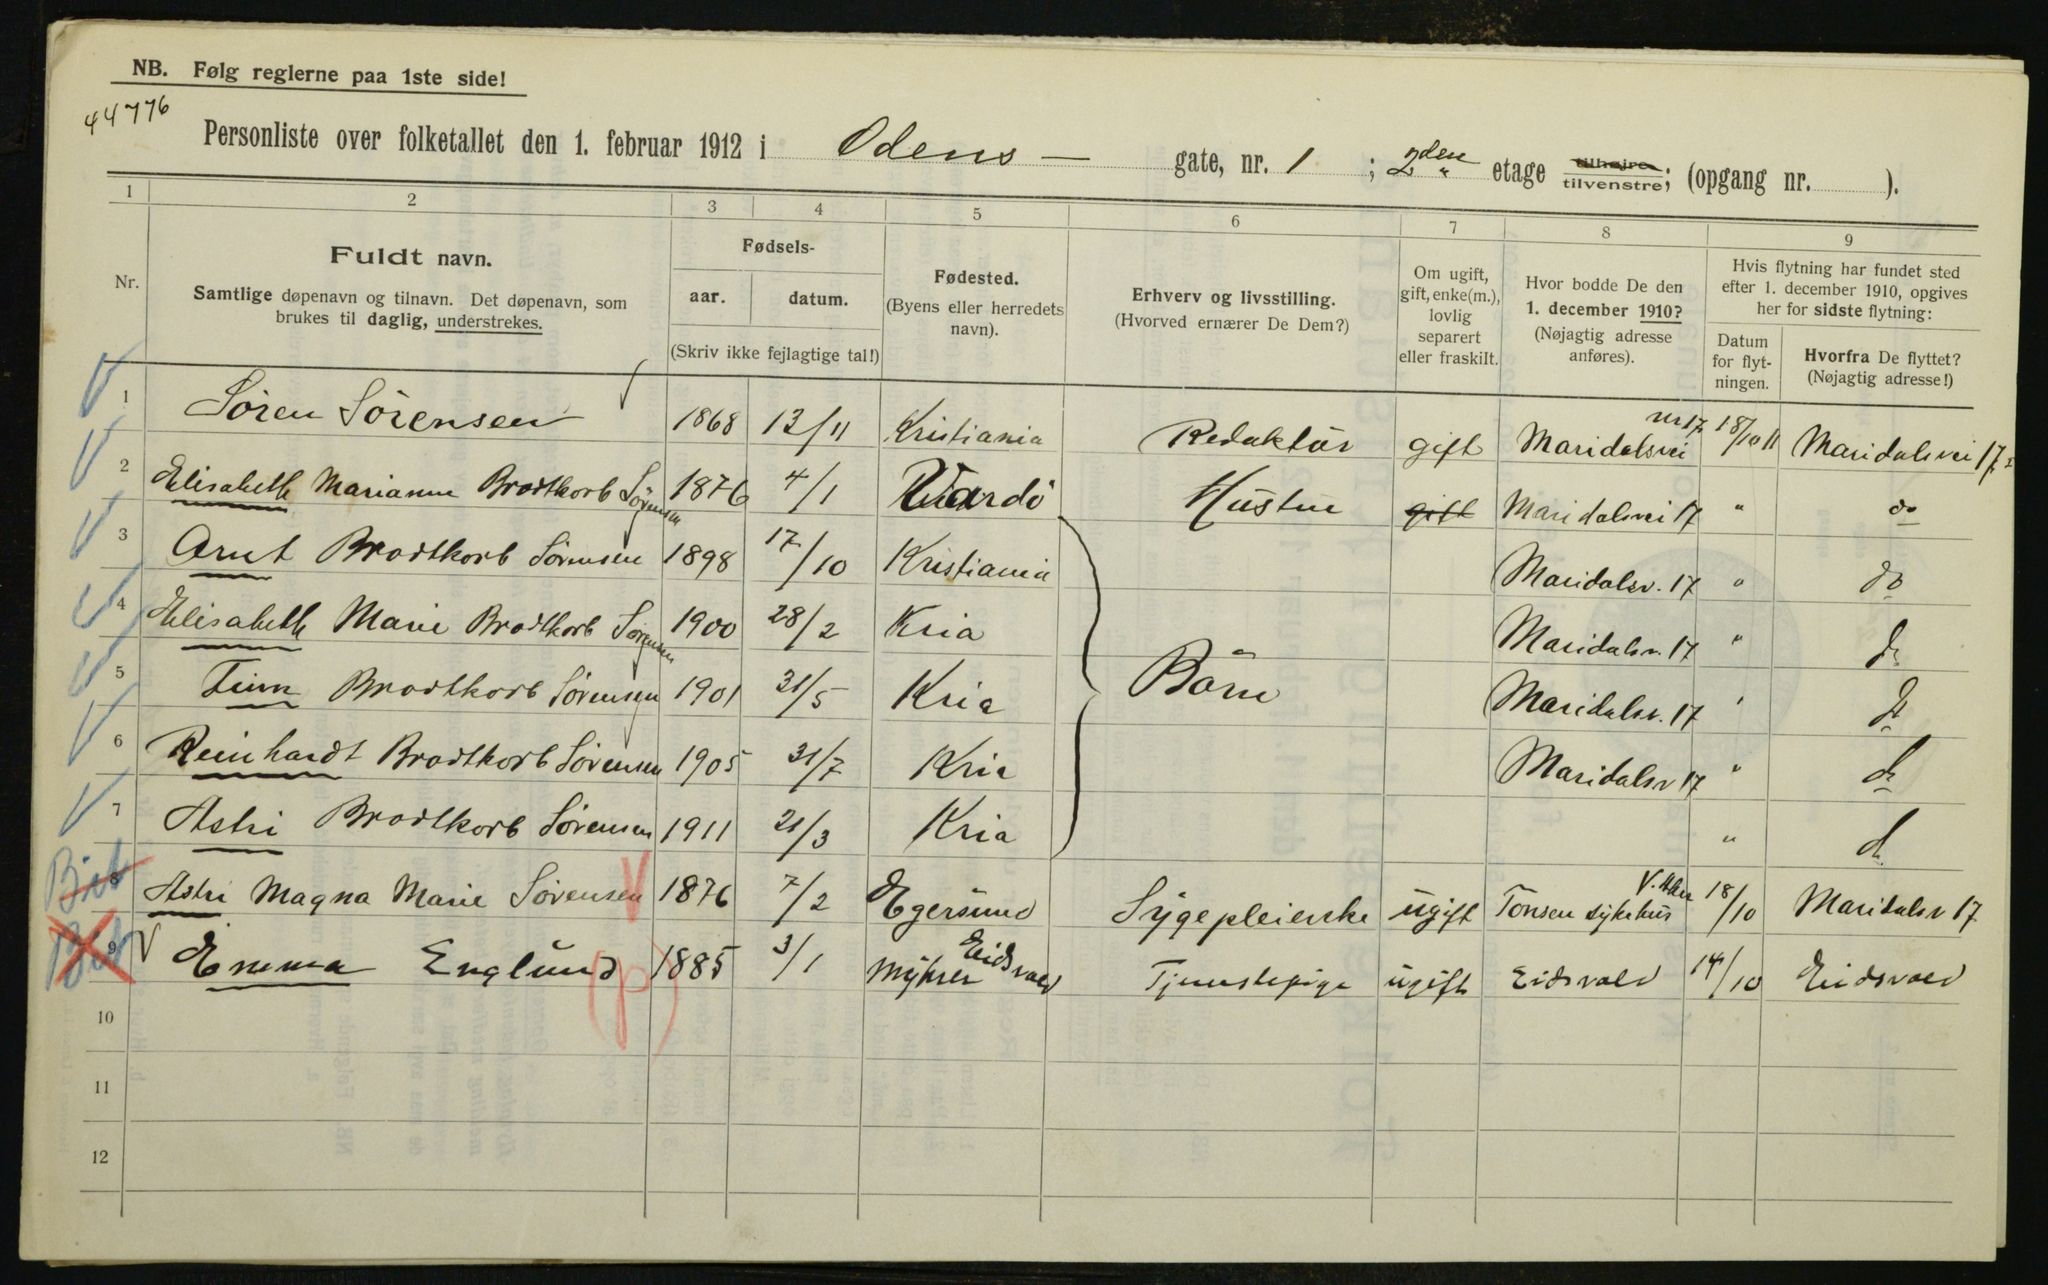 NB. Følg reglerne paa 1ste side!
44776
Personliste over folketallet den 1. februar 1912 i Odens — gate, nr. 1 ; 2den etage tilhøjre tilvenstre; (opgang nr. ).
1 2 3 4 5 6 7 8 9
Nr.
Fuldt navn.
Samtlige døpenavn og tilnavn. Det døpenavn, som
brukes til daglig, understrekes.
Fødsels-
aar. datum.
(Skriv ikke feilagtige tal!)
Fødested.
(Byens eller herredets
navn).
Erhverv og livsstilling.
(Hvorved ernærer De Dem?)
Om ugift,
gift, enke(m.),
lovlig
separert
eller fraskilt.
Hvor bodde De den
1. december 1910?
(Nøjagtig adresse
anføres).
Hvis flytning har fundet sted
efter 1. december 1910, opgives
her for sidste flytning:
Datum
for flyt-
ningen.
Hvorfra De flyttet?
(Nøjagtig adresse!)
1 Sören Sörensen 1868 13/11 Kristiania Redaktör gift Maridalsvei nr 17 18/10 11 Maridalsvei 17
2 Elisabeth Marianne Brodtkorb Sörensen 1876 4/1 Vardö Hustru gift Maridalsvei 17 " do
3 Arnt Brodtkorb Sörensen 1898 17/10 Kristiania Maridalsv. 17 " do
4 Elisabeth Marie Brodtkorb Sörensen 1900 28/2 Kria Maridalsv. 17 " do
5 Finn Brodtkorb Sörensen 1901 31/5 Kria Börn Maridalsv. 17 " do
6 Reinhardt Brodtkorb Sörensen 1905 31/7 Kria Maridalsv 17 " do
7 Astri Brodtkorb Sörensen 1911 21/3 Kria " d.
8 Astri Magna Marie Sörensen 1876 7/2 Egersund Sygepleierske ugift Tonsen sykehus V. Aker 18/10 Maridalsv 17
9 Emma Englund 1885 3/1 Myhrer Eidsvold Tjenestepige ugift Eidsvold 14/10 Eidsvold
10
11
12